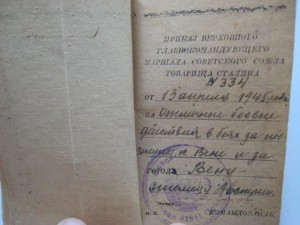 ПРИКАЗ ВЕРХОВНОГО
ГЛАВНОКОМАНДУЮЩЕГО
МАРШАЛА СОВЕТСКОГО СОЮЗА
ТОВАРИЩА СТАЛИНА
№ 334
от 13 апреля 1945 года
за отличные боевые
действия в боях за
Вене и за
ГОРОДА Вену-
столицу Австрии.
КОМАНДОВАТЕЛЬ